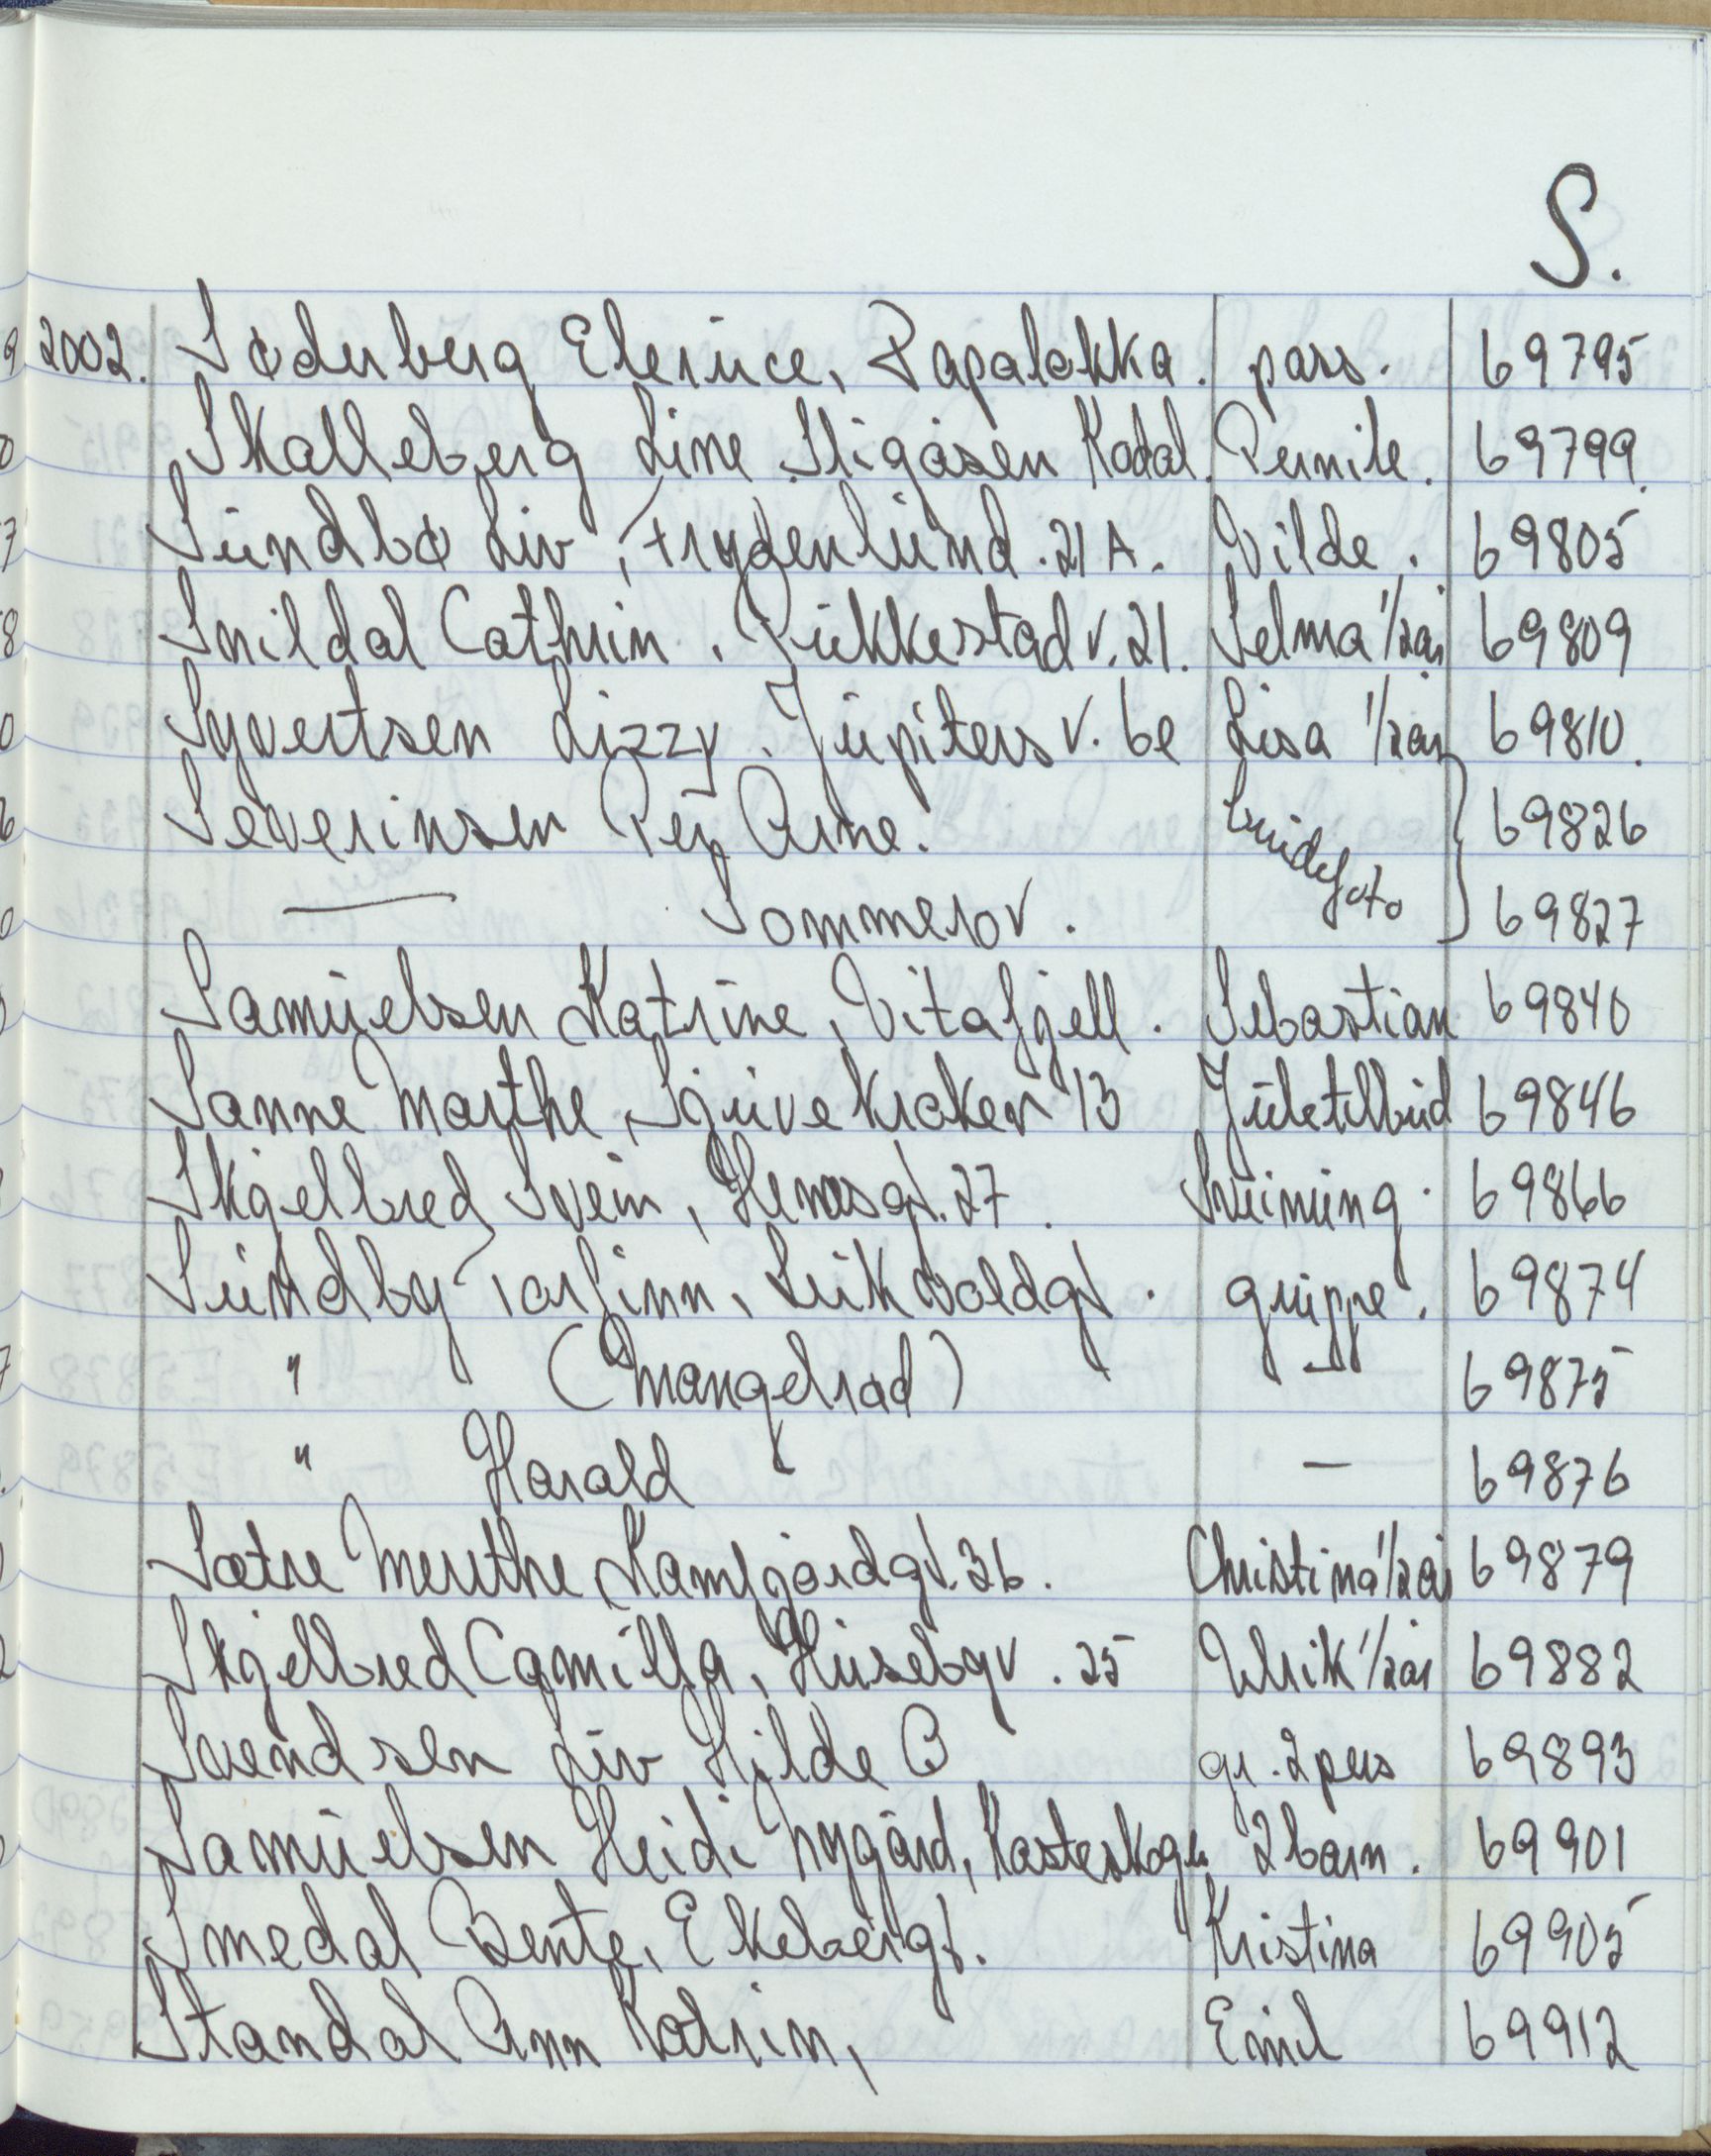 S.
2002. Søderberg Elerice, Papaløkka. pass. 69795
Skalleberg Line Stigåsen Kodal. Pernile. 69799
Sundbø Liv, Frydenlund. 21 A. Vilde. 69805
Snildal Cathrin. Pukkestad v. 21. Selma 1/2 år 69809
Syvertsen Lizzy. Jupiters v. 6e Lisa 1/2 år 69810.
Severinsen Per Arne. brudefoto 69826
— Sommerov. 69827
Samuelsen Katrine, Vitafjell. Sebastian 69840
Sanne Marthe, Sjuvekroken 13 Juletilbud 69846
Skjelbred Svein, gt. 27. 69866
Sundby Torfinn, gt. gruppe. 69874
" (Mangelrød) — 69875
" Harald — 69876
Sætre Merethe Kamfjordgt. 36. Christina 1/2 år 69879
Skjelbred Camilla, Husebyv. 25 Ulrik 1/2 år 69882
Svendsen Liv Hilde B gr. 2 pers 69893
Samuelsen Heidi Nygård, 2 barn. 69901
Smedal Bente, Ekebergt. Kristina 69905
Standal Ann Katrin, Emil 69912